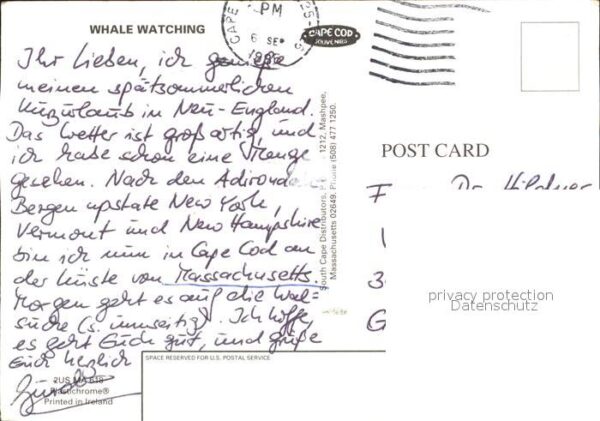 WHALE WATCHING
Ihr Lieben, ich genieße
meinen spätsommerlichen
Kurzurlaub in Neu-England.
Das Wetter ist großartig, und
ich habe schon eine Menge
gesehen. Nach den Adirondack
Bergen upstate New York,
Vermont und New Hampshire
bin ich nun in Cape Cod an
der Küste von Massachusetts.
Morgen geht es auf die Wal=
suche (s. umseitig). Ich hoffe,
es geht Euch gut, und grüße
Euch herzlich
2US MA 619
Plastichrome®
Printed in Ireland
SPACE RESERVED FOR U.S. POSTAL SERVICE
South Cape Distributors, 1212, Mashpee,
Massachusetts 02649. Phone (508) 477 1250.
CAPE
PM
6 SEP
CAPE COD
SOUVENIRS
POST CARD
privacy protection
Datenschutz